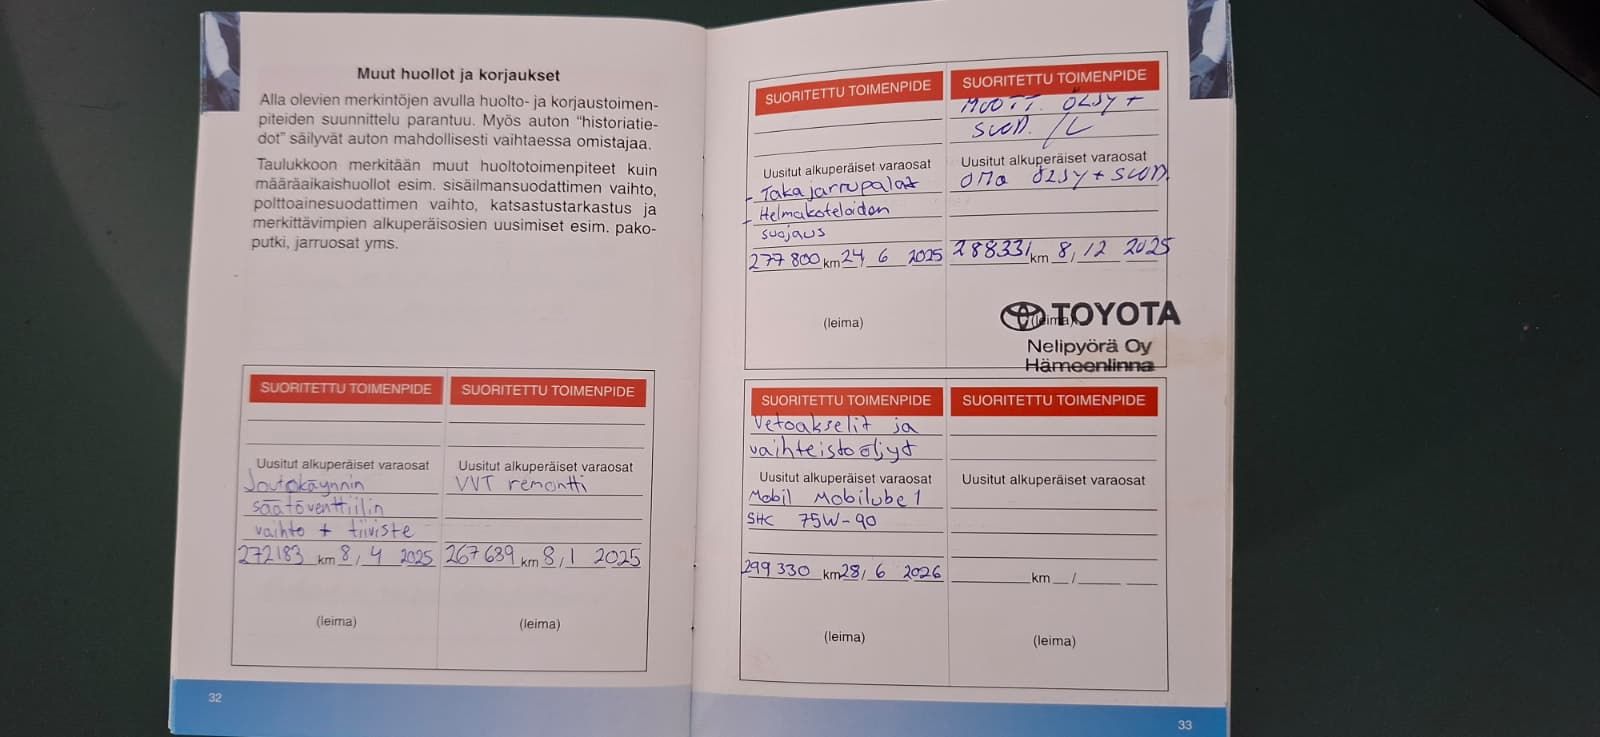 Muut huollot ja korjaukset
Alla olevien merkintöjen avulla huolto- ja korjaustoimen-
piteiden suunnittelu parantuu. Myös auton “historiatie-
dot” säilyvät auton mahdollisesti vaihtaessa omistajaa.
Taulukkoon merkitään muut huoltotoimenpiteet kuin
määräaikaishuollot esim. sisäilmansuodattimen vaihto,
polttoainesuodattimen vaihto, katsastustarkastus ja
merkittävimpien alkuperäisosien uusimiset esim. pako-
putki, jarruosat yms.
SUORITETTU TOIMENPIDE
Uusitut alkuperäiset varaosat
Joutokäynnin
säätöventtiilin
vaihto + tiiviste
272183 km 8, 4 2025
(leima)
SUORITETTU TOIMENPIDE
Uusitut alkuperäiset varaosat
VVT remontti
267639 km 8, 1 2025
(leima)
32
SUORITETTU TOIMENPIDE
Uusitut alkuperäiset varaosat
- Takajarrupalat
- Helmakoteloiden
suojaus
277800 km 24, 6 2025
(leima)
SUORITETTU TOIMENPIDE
MOOTT. ÖLJY +
SUOD.
Uusitut alkuperäiset varaosat
OMA ÖLJY + SUOD.
288331 km 8, 12 2025
(leima)
TOYOTA
Nelipyörä Oy
Hämeenlinna
SUORITETTU TOIMENPIDE
Vetoakselit ja
vaihteistoöljyt
Uusitut alkuperäiset varaosat
Mobil Mobilube 1
SHC 75W-90
299330 km 28, 6 2026
(leima)
SUORITETTU TOIMENPIDE
Uusitut alkuperäiset varaosat
km /
(leima)
33